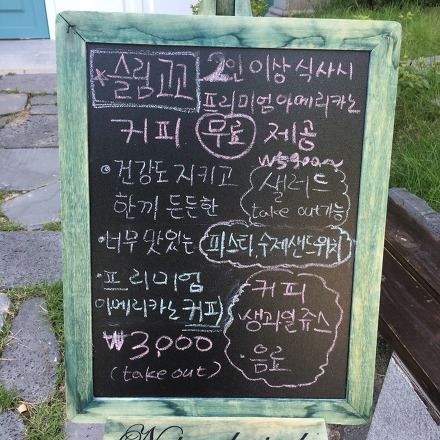 *슬림꼬꼬 2인 이상 식사시
프리미엄 아메리카노
커피 무료 제공
₩5900~
• 건강도 지키고 샐러드
한끼 든든한 take out 가능
• 너무 맛있는 파스타, 수제샌드위치
• 프리미엄 커피
아메리카노 커피 생과일쥬스
₩3,000 • 음료
(take out)